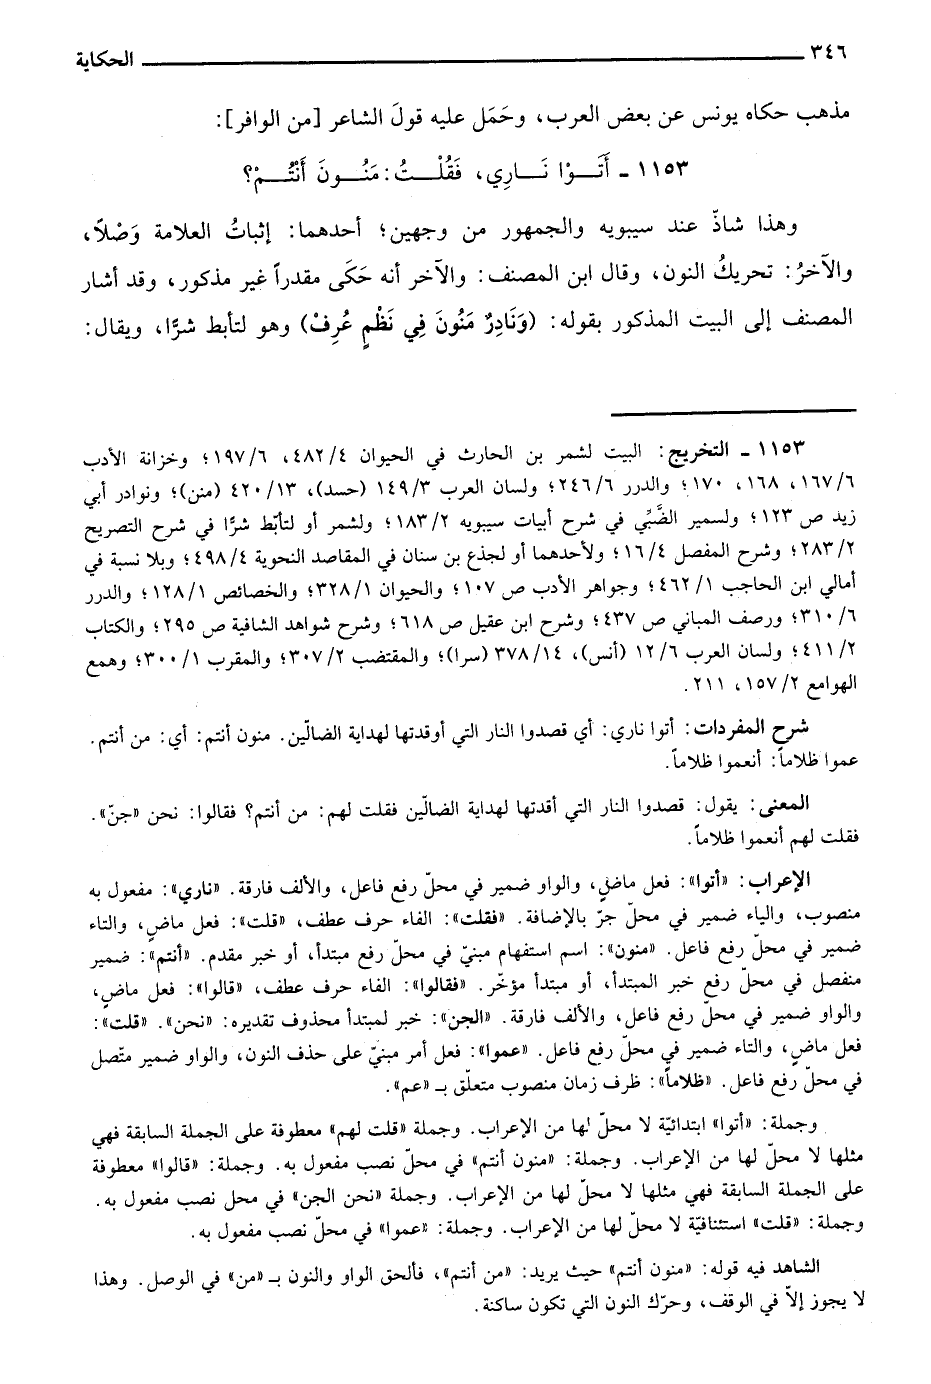 ٣٤٦ الحكاية
مذهب حكاه يونس عن بعض العرب، وحَمَل عليه قولَ الشاعر [من الوافر]:
١١٥٣ - أَتَـوْا نَـارِي، فَقُلْـتُ: مَنُـونَ أَنْتُـمْ؟
وهذا شاذّ عند سيبويه والجمهور من وجهين؛ أحدهما: إثباتُ العلامة وَصْلاً،
والآخرُ: تحريكُ النون، وقال ابن المصنف: والآخر أنه حَكَى مقدراً غير مذكور، وقد أشار
المصنف إلى البيت المذكور بقوله: (وَنَادِرٌ مَنُونَ فِي نَظْمٍ عُرِفْ) وهو لتأبط شرًّا، ويقال:
١١٥٣ - التخريج: البيت لشمر بن الحارث في الحيوان ٤/ ٤٨٢، ٦/ ١٩٧؛ وخزانة الأدب
٦/ ١٦٧، ١٦٨، ١٧٠؛ والدرر ٦/ ٢٤٦؛ ولسان العرب ٣/ ١٤٩ (حسد)، ١٣/ ٤٢٠ (منن)؛ ونوادر أبي
زيد ص ١٢٣؛ ولسمير الضَّبِّي في شرح أبيات سيبويه ٢/ ١٨٣؛ ولشمر أو لتأبّط شرًّا في شرح التصريح
٢/ ٢٨٣؛ وشرح المفصل ٤/ ١٦؛ ولأحدهما أو لجذع بن سنان في المقاصد النحوية ٤/ ٤٩٨؛ وبلا نسبة في
أمالي ابن الحاجب ١/ ٤٦٢؛ وجواهر الأدب ص ١٠٧؛ والحيوان ١/ ٣٢٨؛ والخصائص ١/ ١٢٨؛ والدرر
٦/ ٣١٠؛ ورصف المباني ص ٤٣٧؛ وشرح ابن عقيل ص ٦١٨؛ وشرح شواهد الشافية ص ٢٩٥؛ والكتاب
٢/ ٤١١؛ ولسان العرب ٦/ ١٢ (أنس)، ١٤/ ٣٧٨ (سرا)؛ والمقتضب ٢/ ٣٠٧؛ والمقرب ١/ ٣٠٠؛ وهمع
الهوامع ٢/ ١٥٧، ٢١١.
شرح المفردات: أتوا ناري: أي قصدوا النار التي أوقدتها لهداية الضالّين. منون أنتم: أي: من أنتم.
عموا ظلاماً: أنعموا ظلاماً.
المعنى: يقول: قصدوا النار التي أقدتها لهداية الضالّين فقلت لهم: من أنتم؟ فقالوا: نحن «جنّ».
فقلت لهم أنعموا ظلاماً.
الإعراب: «أتوا»: فعل ماضٍ، والواو ضمير في محلّ رفع فاعل، والألف فارقة. «ناري»: مفعول به
منصوب، والياء ضمير في محلّ جرّ بالإضافة. «فقلت»: الفاء حرف عطف، «قلت»: فعل ماضٍ، والتاء
ضمير في محلّ رفع فاعل. «منون»: اسم استفهام مبنيّ في محلّ رفع مبتدأ، أو خبر مقدم. «أنتم»: ضمير
منفصل في محلّ رفع خبر المبتدأ، أو مبتدأ مؤخّر. «فقالوا»: الفاء حرف عطف، «قالوا»: فعل ماضٍ،
والواو ضمير في محلّ رفع فاعل، والألف فارقة. «الجن»: خبر لمبتدأ محذوف تقديره: «نحن». «قلت»:
فعل ماضٍ، والتاء ضمير في محلّ رفع فاعل. «عموا»: فعل أمر مبنيّ على حذف النون، والواو ضمير متّصل
في محلّ رفع فاعل. «ظلاماً»: ظرف زمان منصوب متعلّق بـ «عم».
وجملة: «أتوا» ابتدائيّة لا محلّ لها من الإعراب. وجملة «قلت لهم» معطوفة على الجملة السابقة فهي
مثلها لا محلّ لها من الإعراب. وجملة: «منون أنتم» في محلّ نصب مفعول به. وجملة: «قالوا» معطوفة
على الجملة السابقة فهي مثلها لا محلّ لها من الإعراب. وجملة «نحن الجن» في محل نصب مفعول به.
وجملة: «قلت» استئنافيّة لا محلّ لها من الإعراب. وجملة: «عموا» في محلّ نصب مفعول به.
الشاهد فيه قوله: «منون أنتم» حيث يريد: «من أنتم»، فألحق الواو والنون بـ «من» في الوصل. وهذا
لا يجوز إلاّ في الوقف، وحرّك النون التي تكون ساكنة.